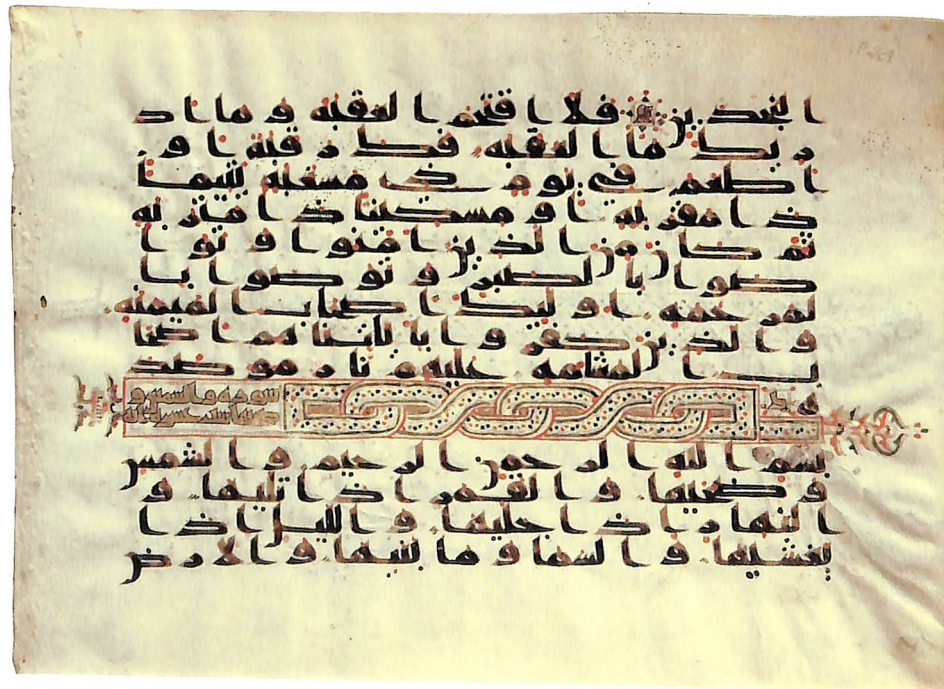 النجدين فلا اقتحم العقبه وما اد
ريك ما العقبه فك رقبه او
اطعم في يوم ذي مسغبه يتيما
ذا مقربه او مسكينا ذا متربه
ثم كان من الذين امنوا وتوا
صوا بالصبر وتوصوا با
لمرحمه اوليك اصحاب الميمنه
والذين كفروا باييتنا هم اصحا
ب المشامه عليهم نار موصد
ه
سوره والشمس و
ضحاها ست عشر ايه
بسم الله الرحمن الرحيم والشمس
وضحيها والقمر اذا تليها و
النهار اذا جليها واليل اذا
يغشيها والسما وما بنيها والارض